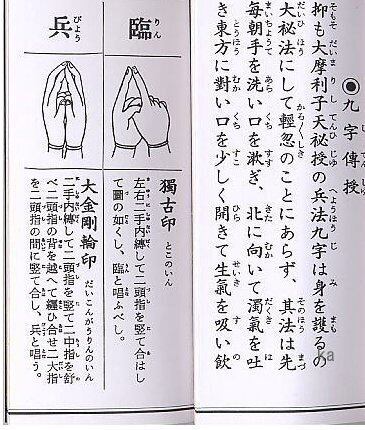 ◉九字傳授
抑も大摩利子天祕授の兵法九字は身を護るの
大祕法にして輕忽のことにあらず、其法は先
毎朝手を洗い口を漱ぎ、北に向いて濁氣を吐
き東方に對い口を少しく開きて生氣を吸い飲
臨
獨古印
左右二手内縛して二頭指を竪て合はし
て圖の如くし、臨と唱ふべし。
兵
大金剛輪印
二手内縛して二頭指を竪て二中指を舒
べ二頭指の背を越へて纒ひ合せ二大指
を二頭指の間に竪て合し、兵と唱う。
ka